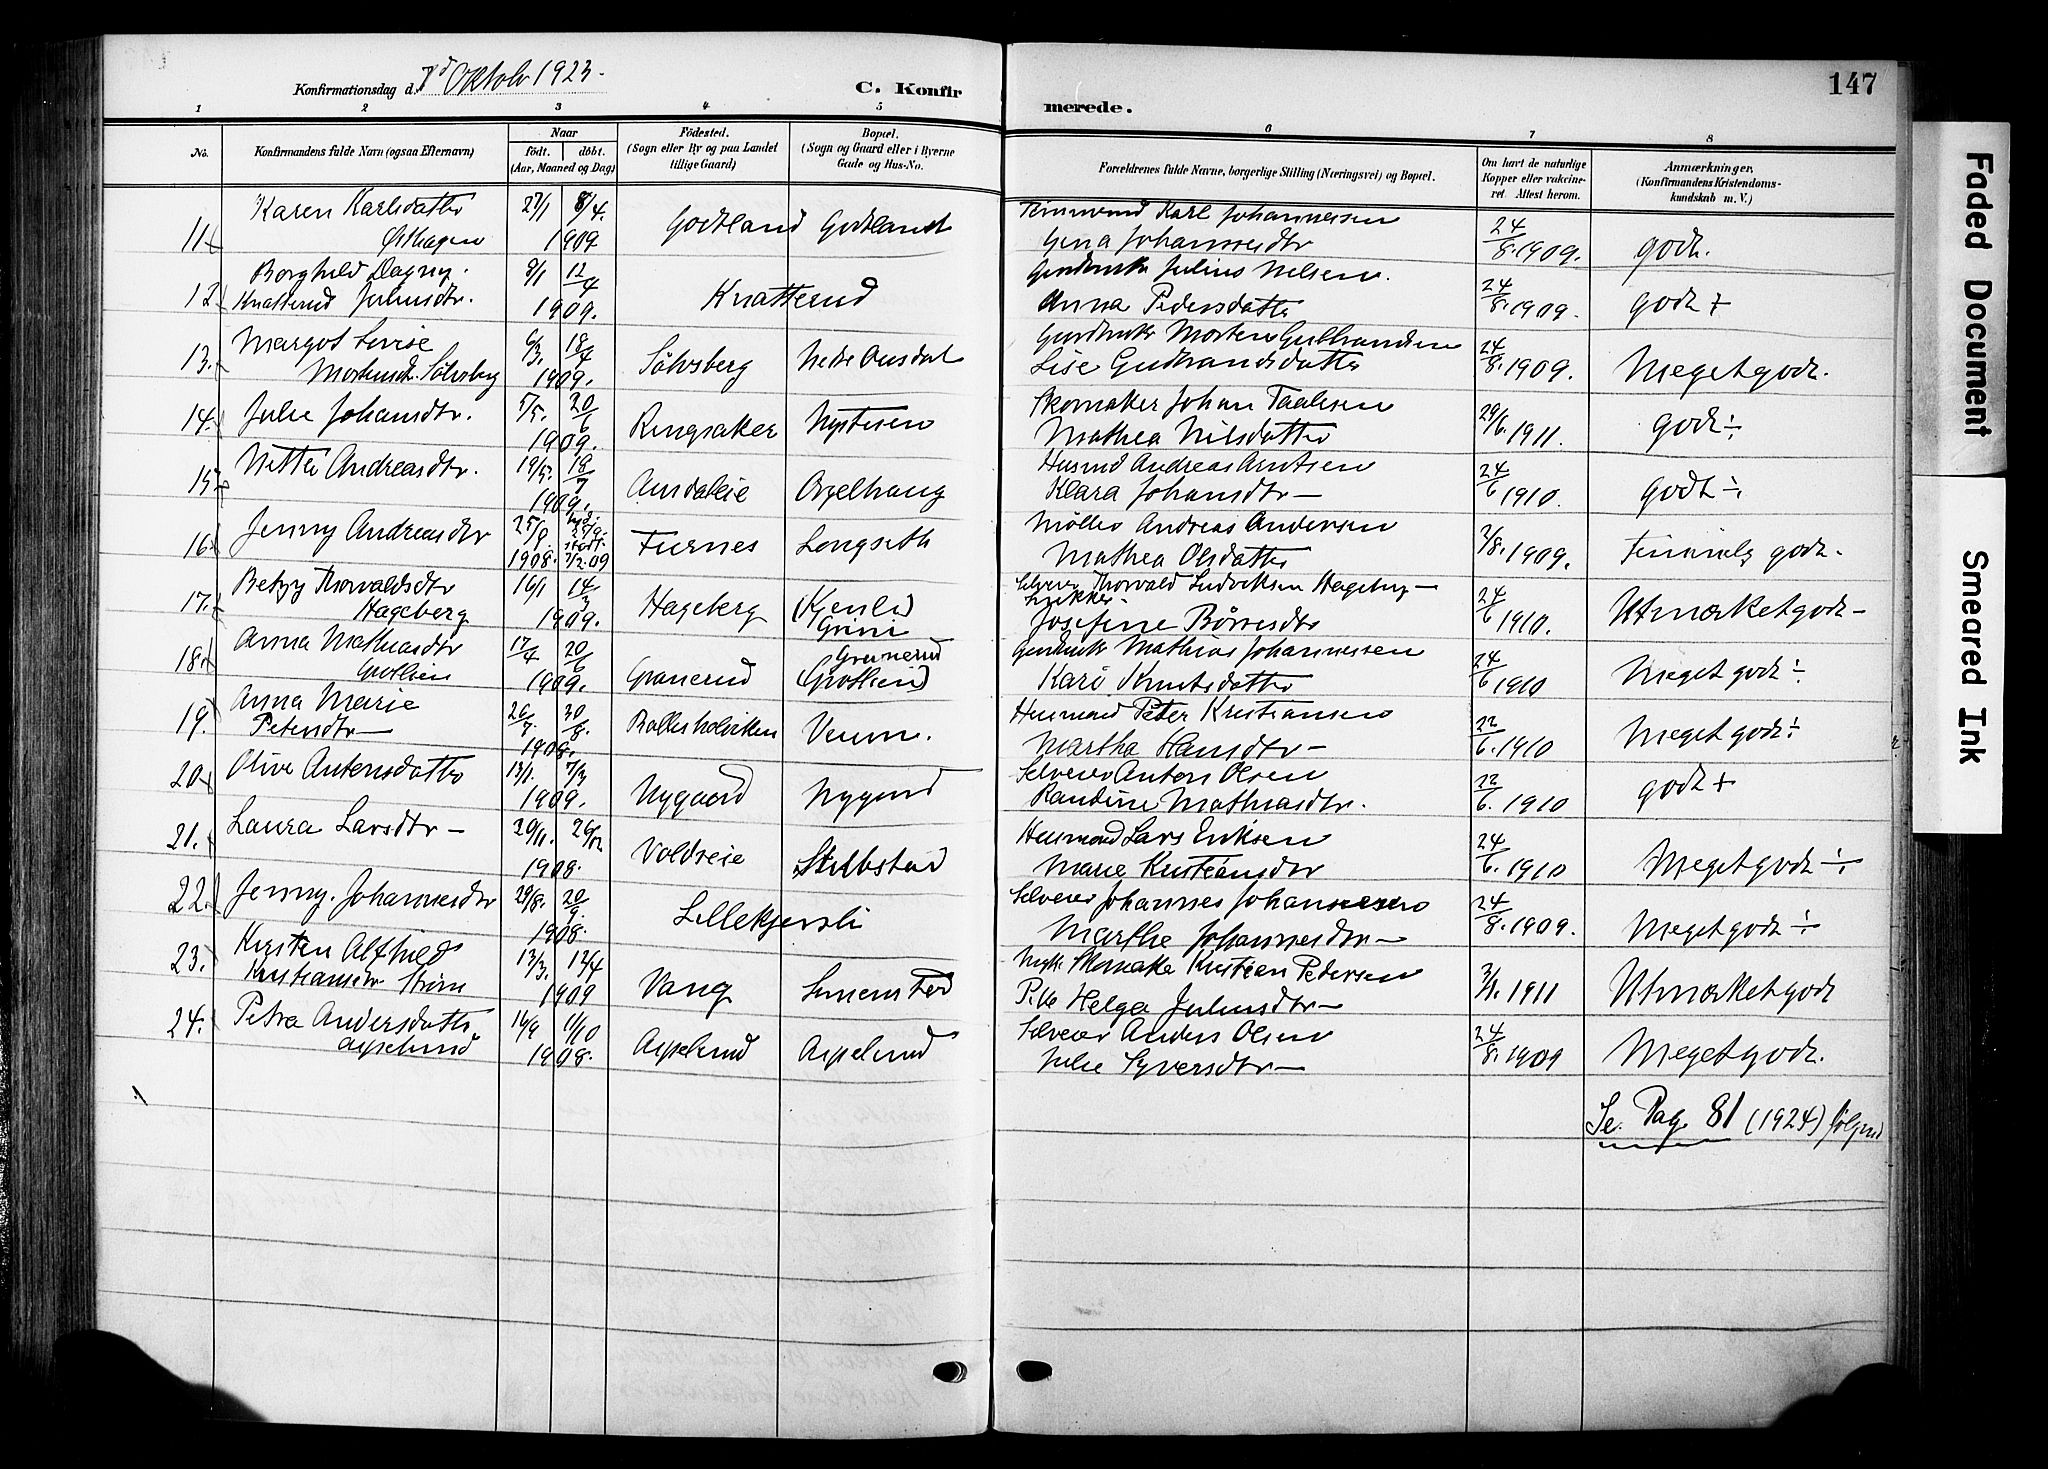 Konfirmationsdag d. 7d Oktobr 1923.
C. Konfir
merede.
147
1 2 3 4 5 6 7 8
No.
Konfirmandens fulde Navn (ogsaa Efternavn)
Naar
født. døbt.
(Aar, Maaned og Dag)
Fødested.
(Sogn eller By og paa Landet
tillige Gaard)
Bopæl.
(Sogn og Gaard eller i Byerne
Gade og Hus-No.
Forældrenes fulde Navne, borgerlige Stilling (Næringsvei) og Bopæl.
Om havt de naturlige
Kopper eller vakcine-
ret. Attest herom.
Anmærkninger,
(Konfirmandens Kristendoms-
kundskab m. V.)
Karen Karlsdatter 27/1 8/4. Godtland Godtland Karl Johannessen 24
11. Østhagen 1909. Gina Johannesdtr 8. 1909. godt.
Borghild Dagny. 8/1 12/4 Knatterud Gardbruker Julius Nilsen. 24
12. Knatterud Juliusdtr. 1909. Anna Pedersdatter 8. 1909. godt +
Margot Lovise 6/3. 18/4 Sølvsberg Nedre Ausdal Gardbruker Morten Gulbrandsen 24
13. Mortensdtr. Sølvsberg 1909. Lise Gudbrandsdatter 8. 1909. Meget godt.
14. Julie Johansdtr. 5/5. 20/6 Ringsaker Nystuen Skomaker Johan Paalesen 29/6. 1911. godt ÷
1909. Mathea Nilsdatter
15. Nitter Andreasdtr. 19/5. 18/7 Ausdaleie Husmd Andreas Arntsen 24
1909. Klara Johansdtr — 6 1910. godt ÷
16. Jenny Andreasdtr 25/8. Furnes Longseth Møller Andreas Andersen 3/8. 1909. Temmelig godt.
1908. 7/2.09 Mathea Olsdatter
Betzy Thorvaldsdtr 16/1 14/3 Hageberg (Kjenli) Selveier Thorvald Ludviksen Hageberg — 24
17. Hageberg 1909. Grini Josefine Børresdtr 6 1910. Utmærket godt —
18. Anna Mathiasdtr 17/4 20/6 Granerud Granerud Gardbruker Mathias Johannessen 24
Grotlien 1909. (Grotlien) Kari Knutsdatter 6 1910 Meget godt ÷
19. Anna Marie 26/7. 30/8. Venn. Husmand Peter Kristiansen 22
Petersdtr — 1908. Martha Hansdtr — 6. 1910 Meget godt ÷
20. Olive Antonsdatter 13/1. 7/3 Nygaard Nygard Selveier Anton Olsen 22
1909. Randine Mathiasdtr. 6. 1910 godt +
21. Laura Larsdtr — 20/11. 26/12 Voldseie Stubstad Husmand Lars Eriksen 24
1908. Marie Kristiansdtr 6. 1910 Meget godt ÷
22. Jenny. Johannesdtr 29/8. 20/9. Lillekjersli Selveier Johannes Johannesen 24
1908. Marthe Johannesdtr — 8. 1909. Meget godt ÷
23. Kirsten Alfhild 13/3. 12/4 Vang Simenstad Skomaker Kristian Pedersen 3/1. 1911 Utmærket godt
Kristiansdtr Strøm 1909 Helga Juliusdtr —
24. Petra Andersdatter 16/9 11/10 Aspelund Aspelund Selveier Anders Olsen 24
Aspelund 1908. Julie Syversdtr — 8. 1909 Meget godt.
Se. Pag. 81 (1924) følgend
Faded Document
Smeared Ink